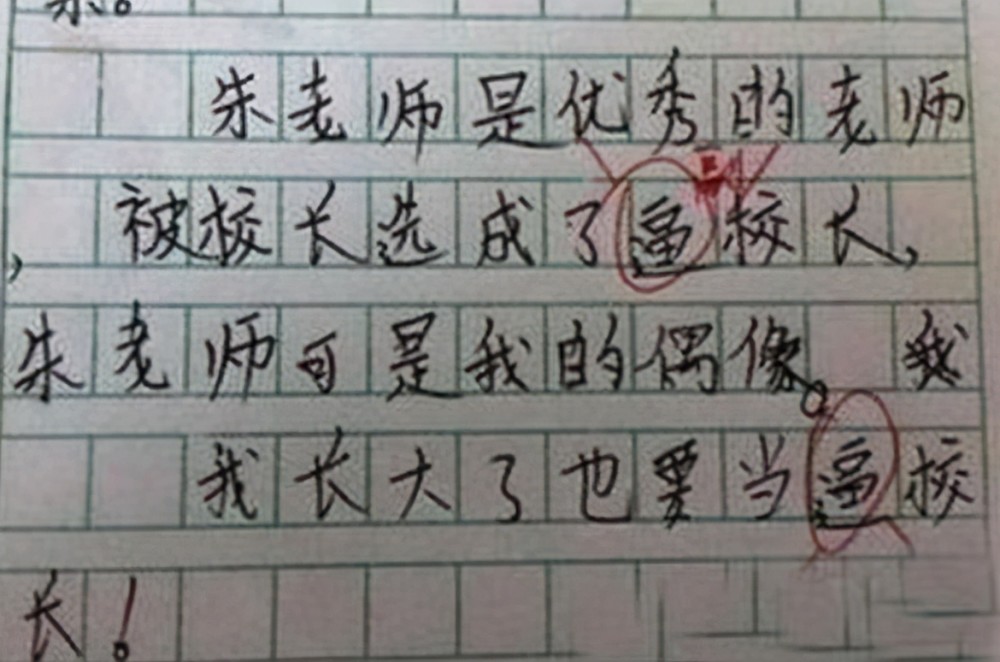 朱老师是优秀的老师
,被校长选成了逼校长,
朱老师可是我的偶像。我
我长大了也要当逼校
长!